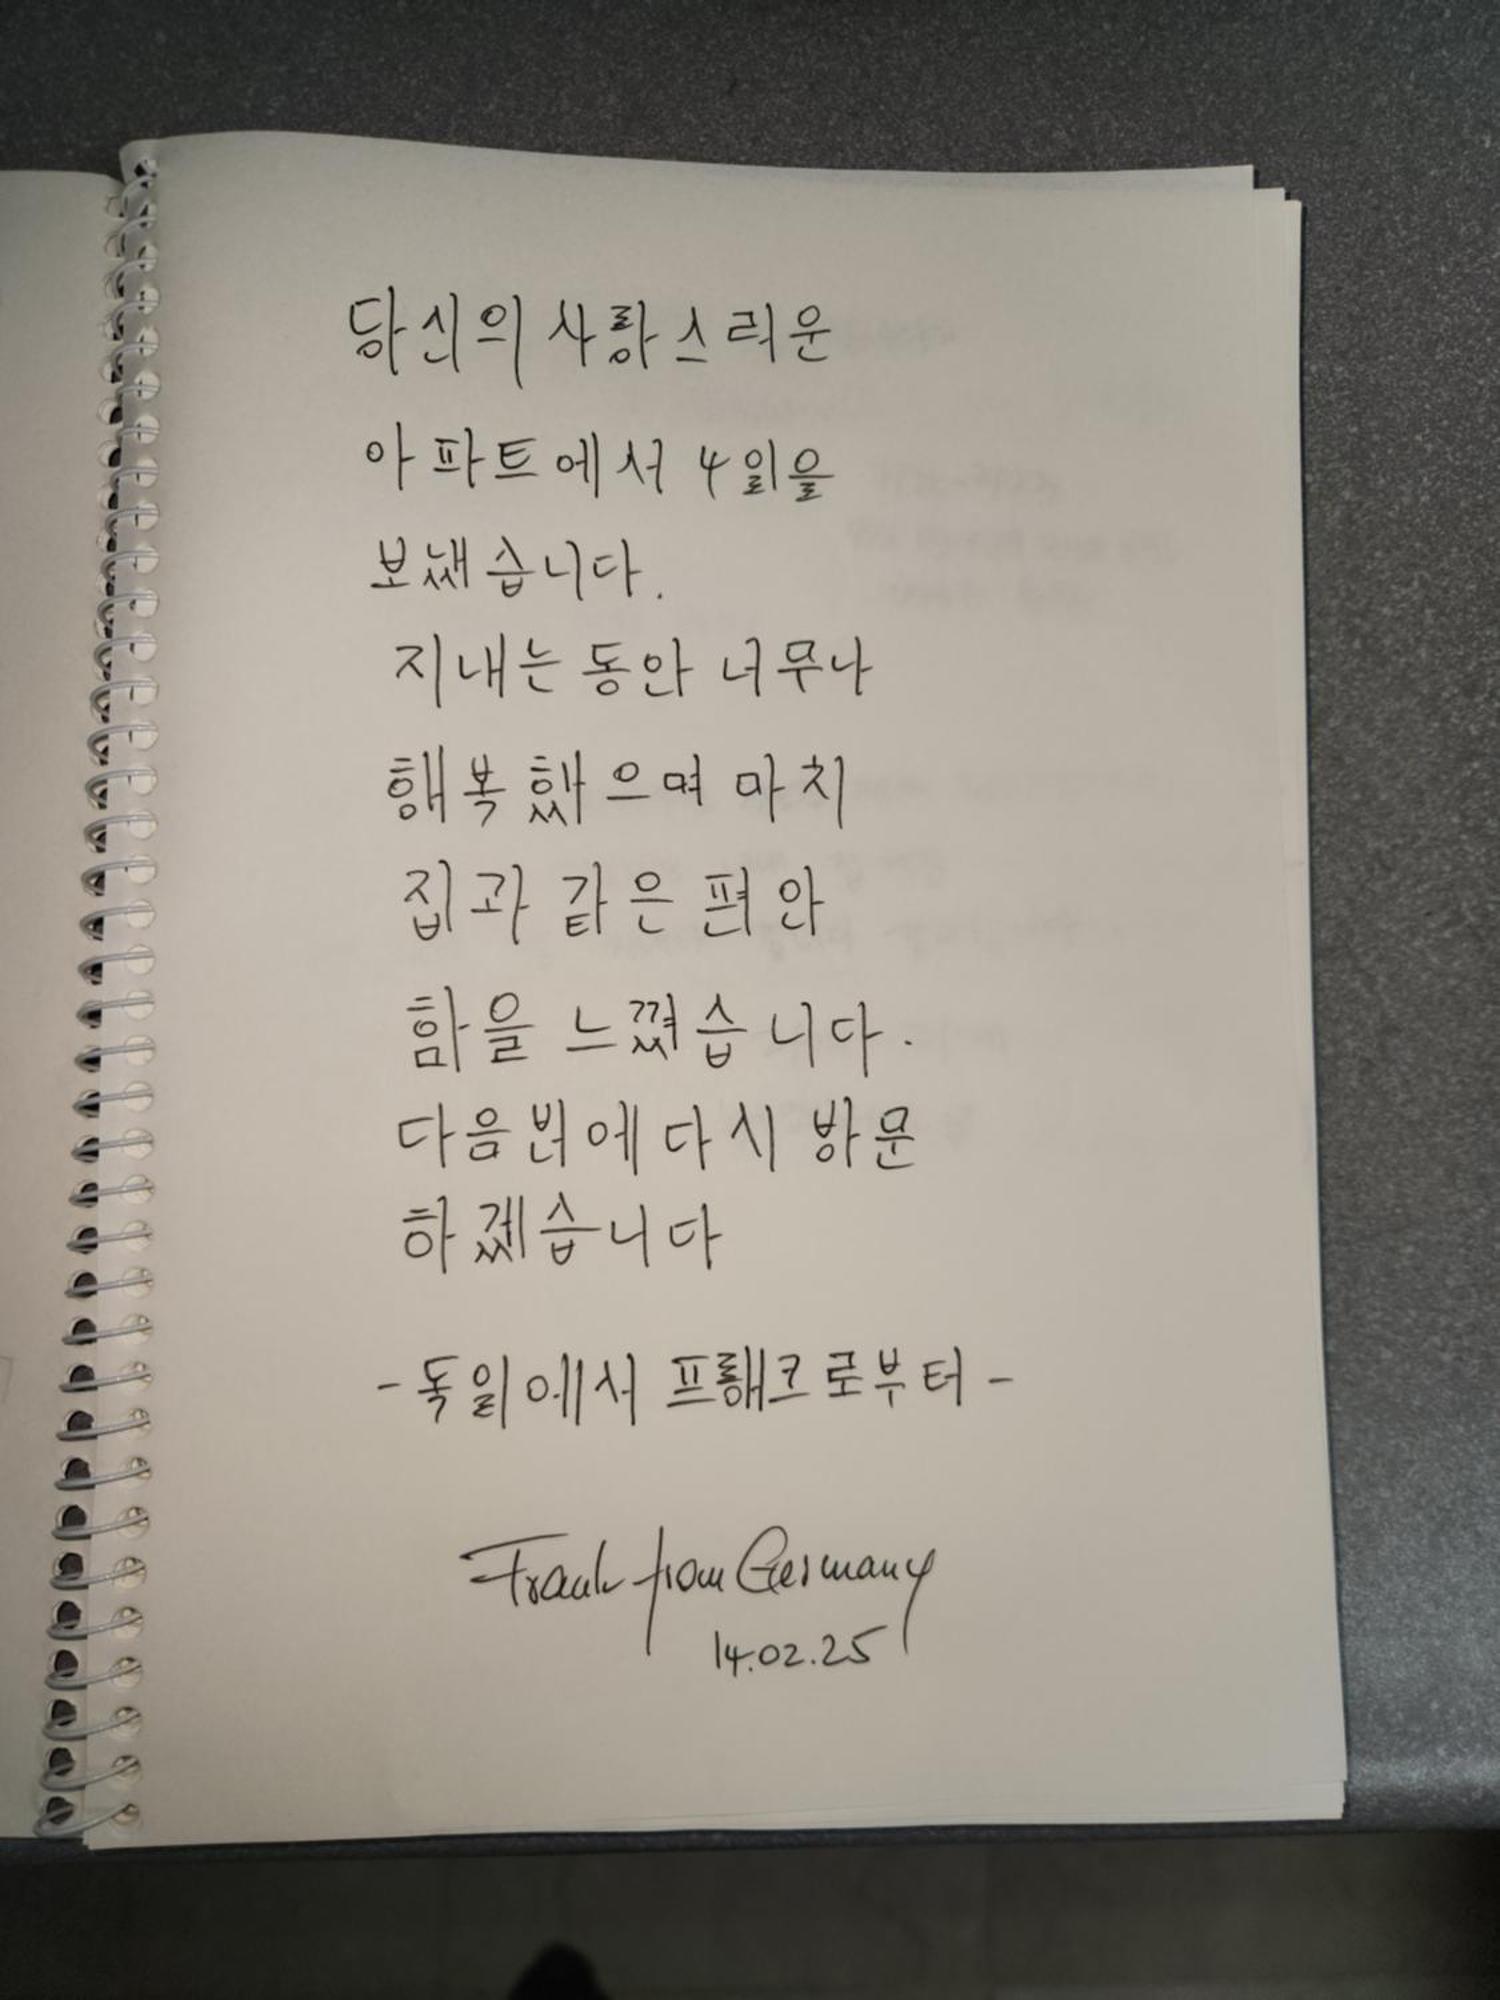 당신의 사랑스러운
아파트에서 4일을
보냈습니다.
지내는 동안 너무나
행복했으며 마치
집과 같은 편안
함을 느꼈습니다.
다음번에 다시 방문
하겠습니다
-독일에서 프랭크로부터-
Frank from Germany
14.02.25